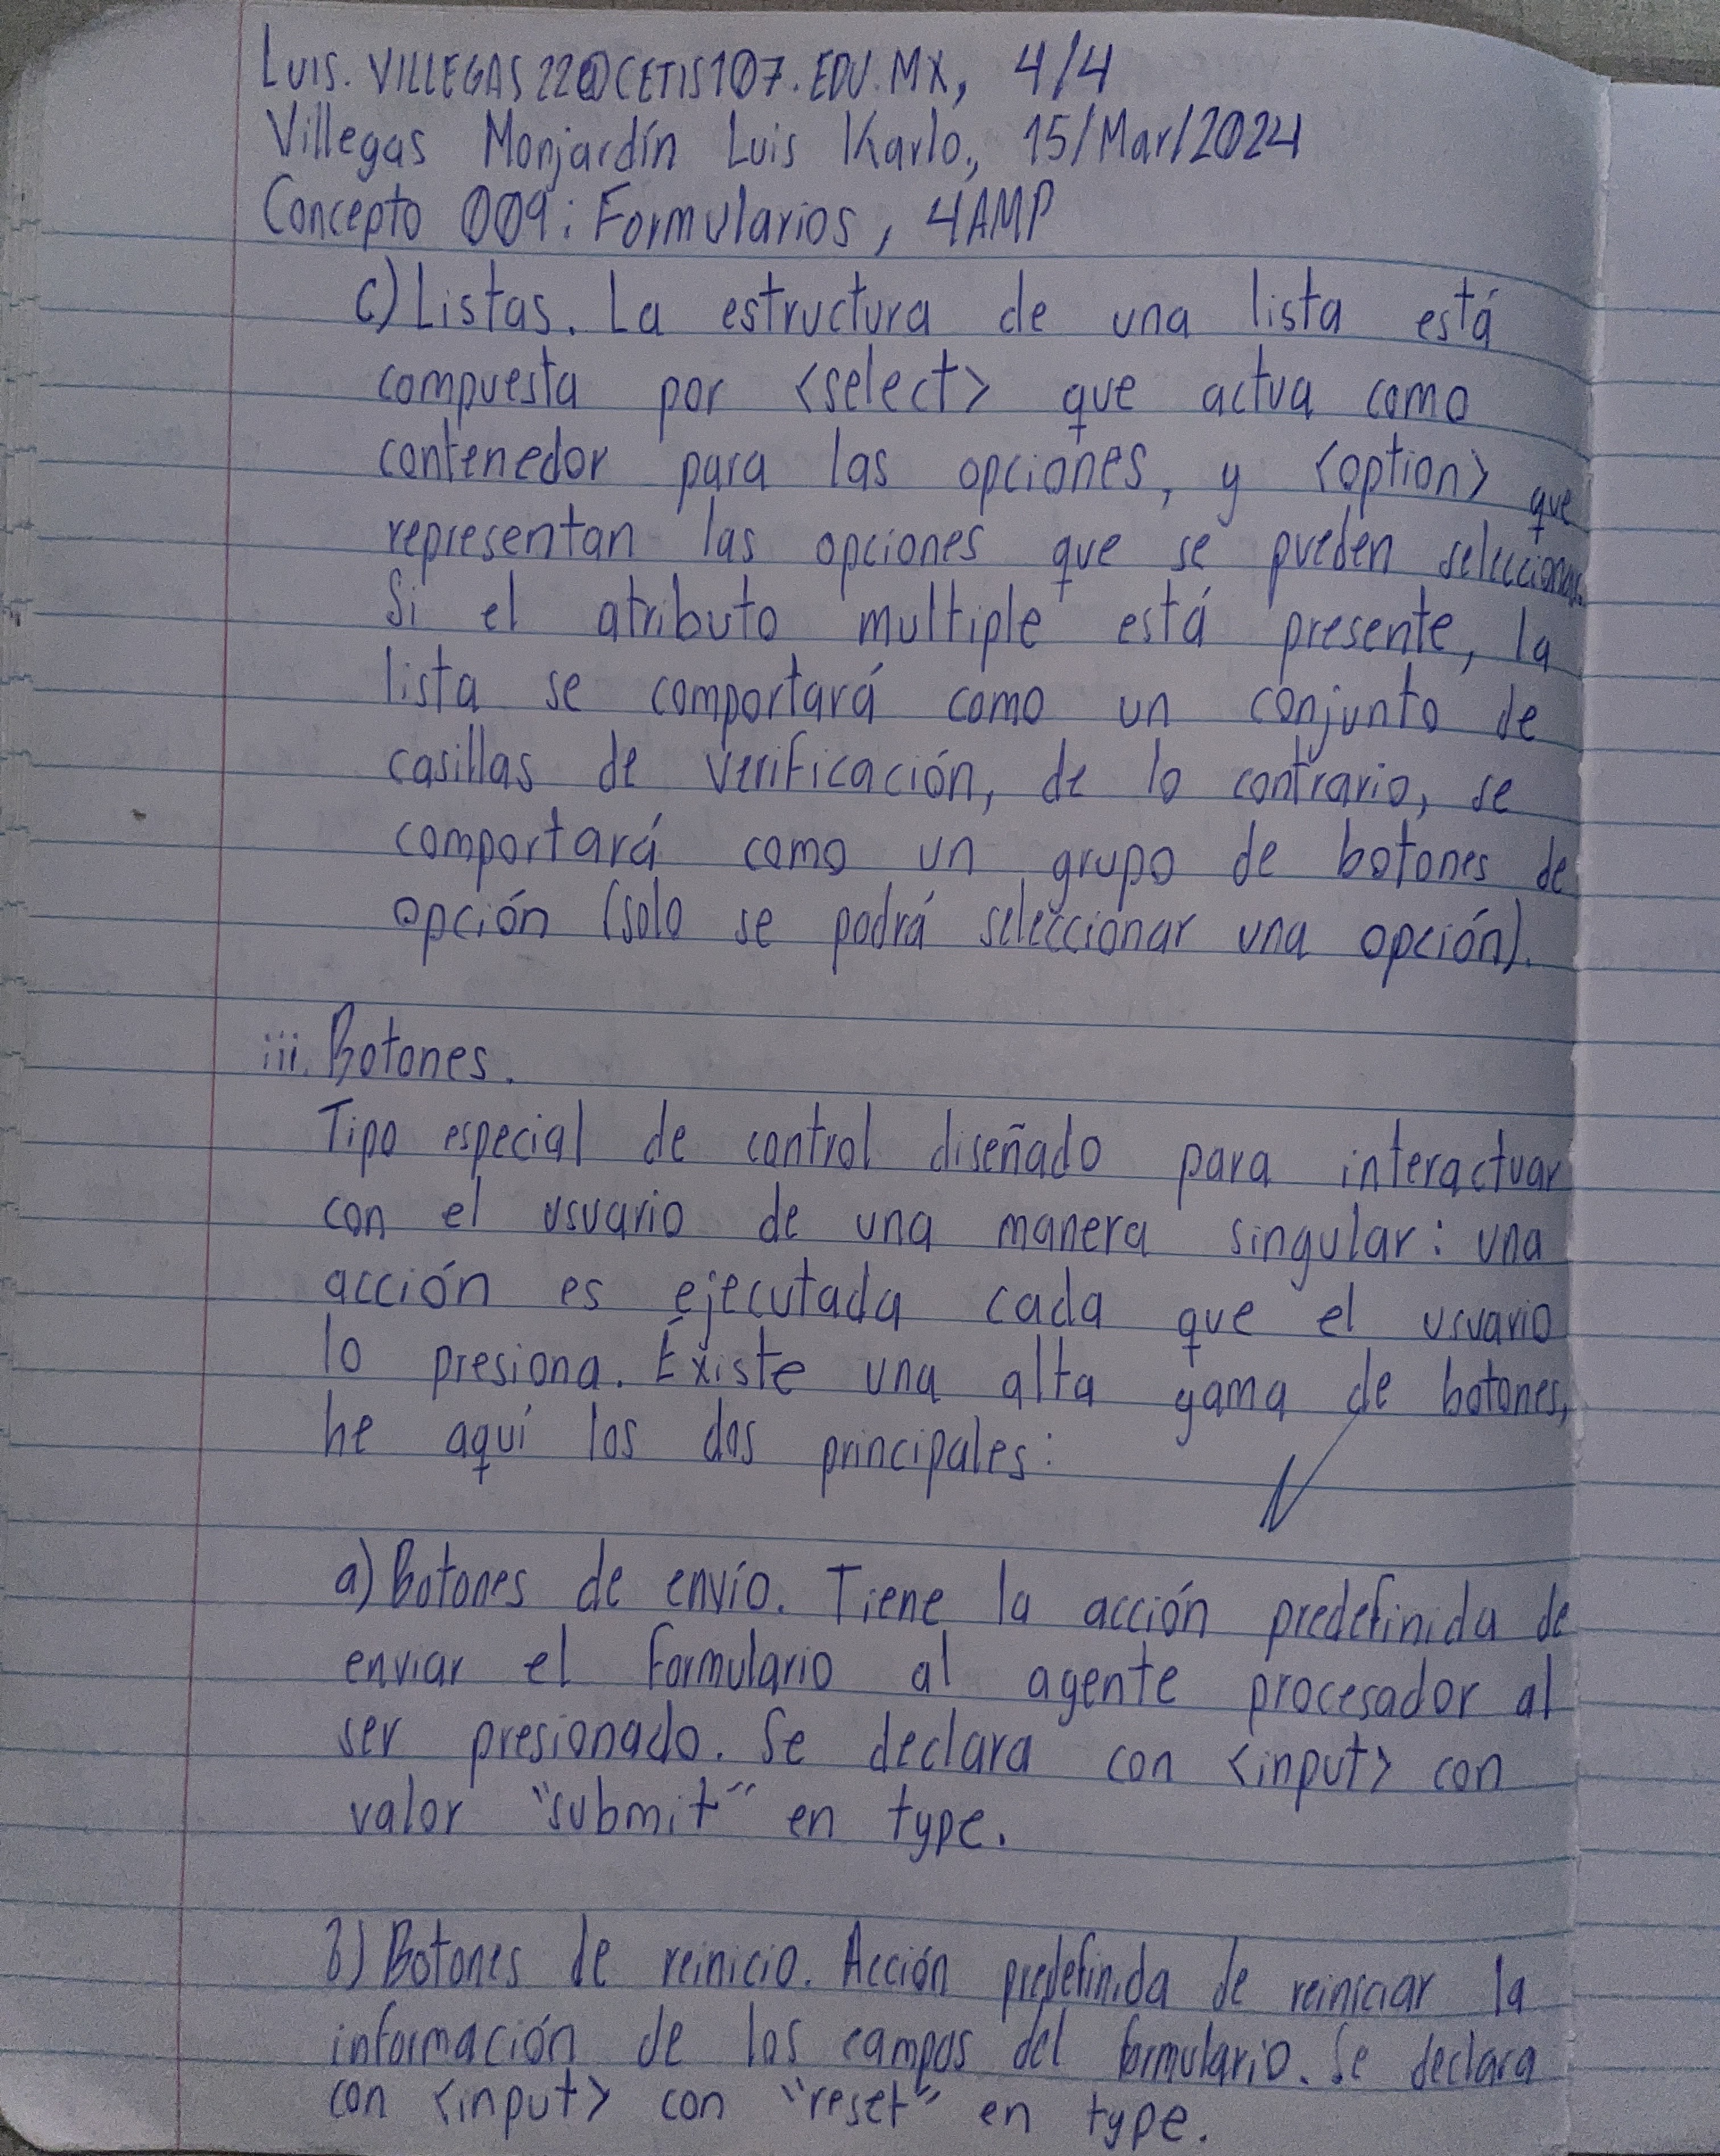 LUIS.VILLEGAS22@CETIS107.EDU.MX, 4/4
Villegas Monjardín Luis Karlo, 15/Mar/2024
Concepto 009: Formularios, 4AMP
c) Listas. La estructura de una lista está
compuesta por <select> que actua como
contenedor para las opciones, y <option> que
representan las opciones que se pueden seleccionar.
Si el atributo multiple está presente, la
lista se comportará como un conjunto de
casillas de verificación, de lo contrario, se
comportará como un grupo de botones de
opción (solo se podrá seleccionar una opción).
iii. Botones.
Tipo especial de control diseñado para interactuar
con el usuario de una manera singular: una
acción es ejecutada cada que el usuario
lo presiona. Existe una alta gama de botones,
he aquí los dos principales:
a) Botones de envío. Tiene la acción predefinida de
enviar el formulario al agente procesador al
ser presionado. Se declara con <input> con
valor "submit" en type.
b) Botones de reinicio. Acción predefinida de reiniciar la
información de los campos del formulario. Se declara
con <input> con "reset" en type.